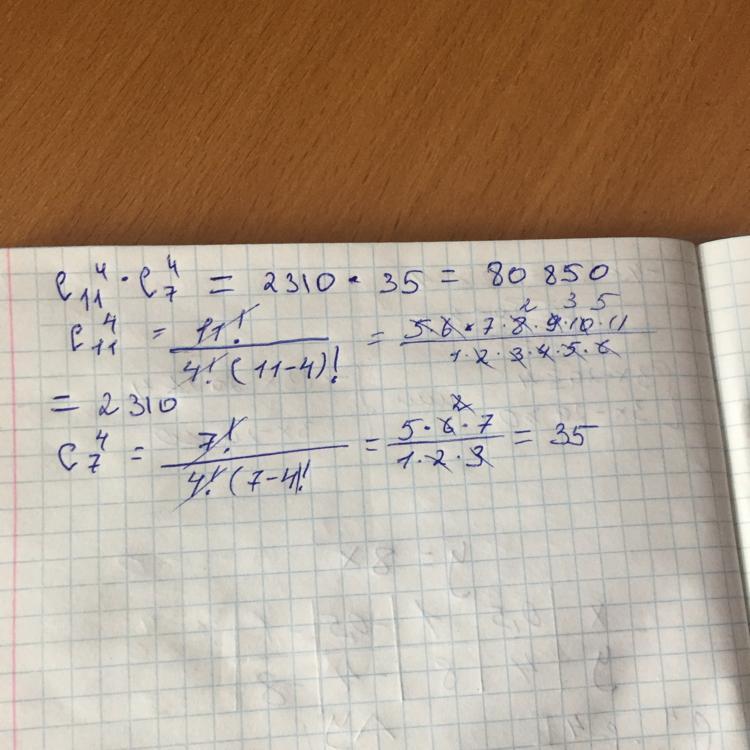 C₁₁⁴ · C₇⁴ = 2310 · 35 = 80 850
C₁₁⁴ = 11! / 4! (11-4)! = 5·6·7·8·9·10·11 / 1·2·3·4·5·6 2 3 5
= 2310
C₇⁴ = 7! / 4! (7-4)! = 5·6·7 / 1·2·3 = 35 2